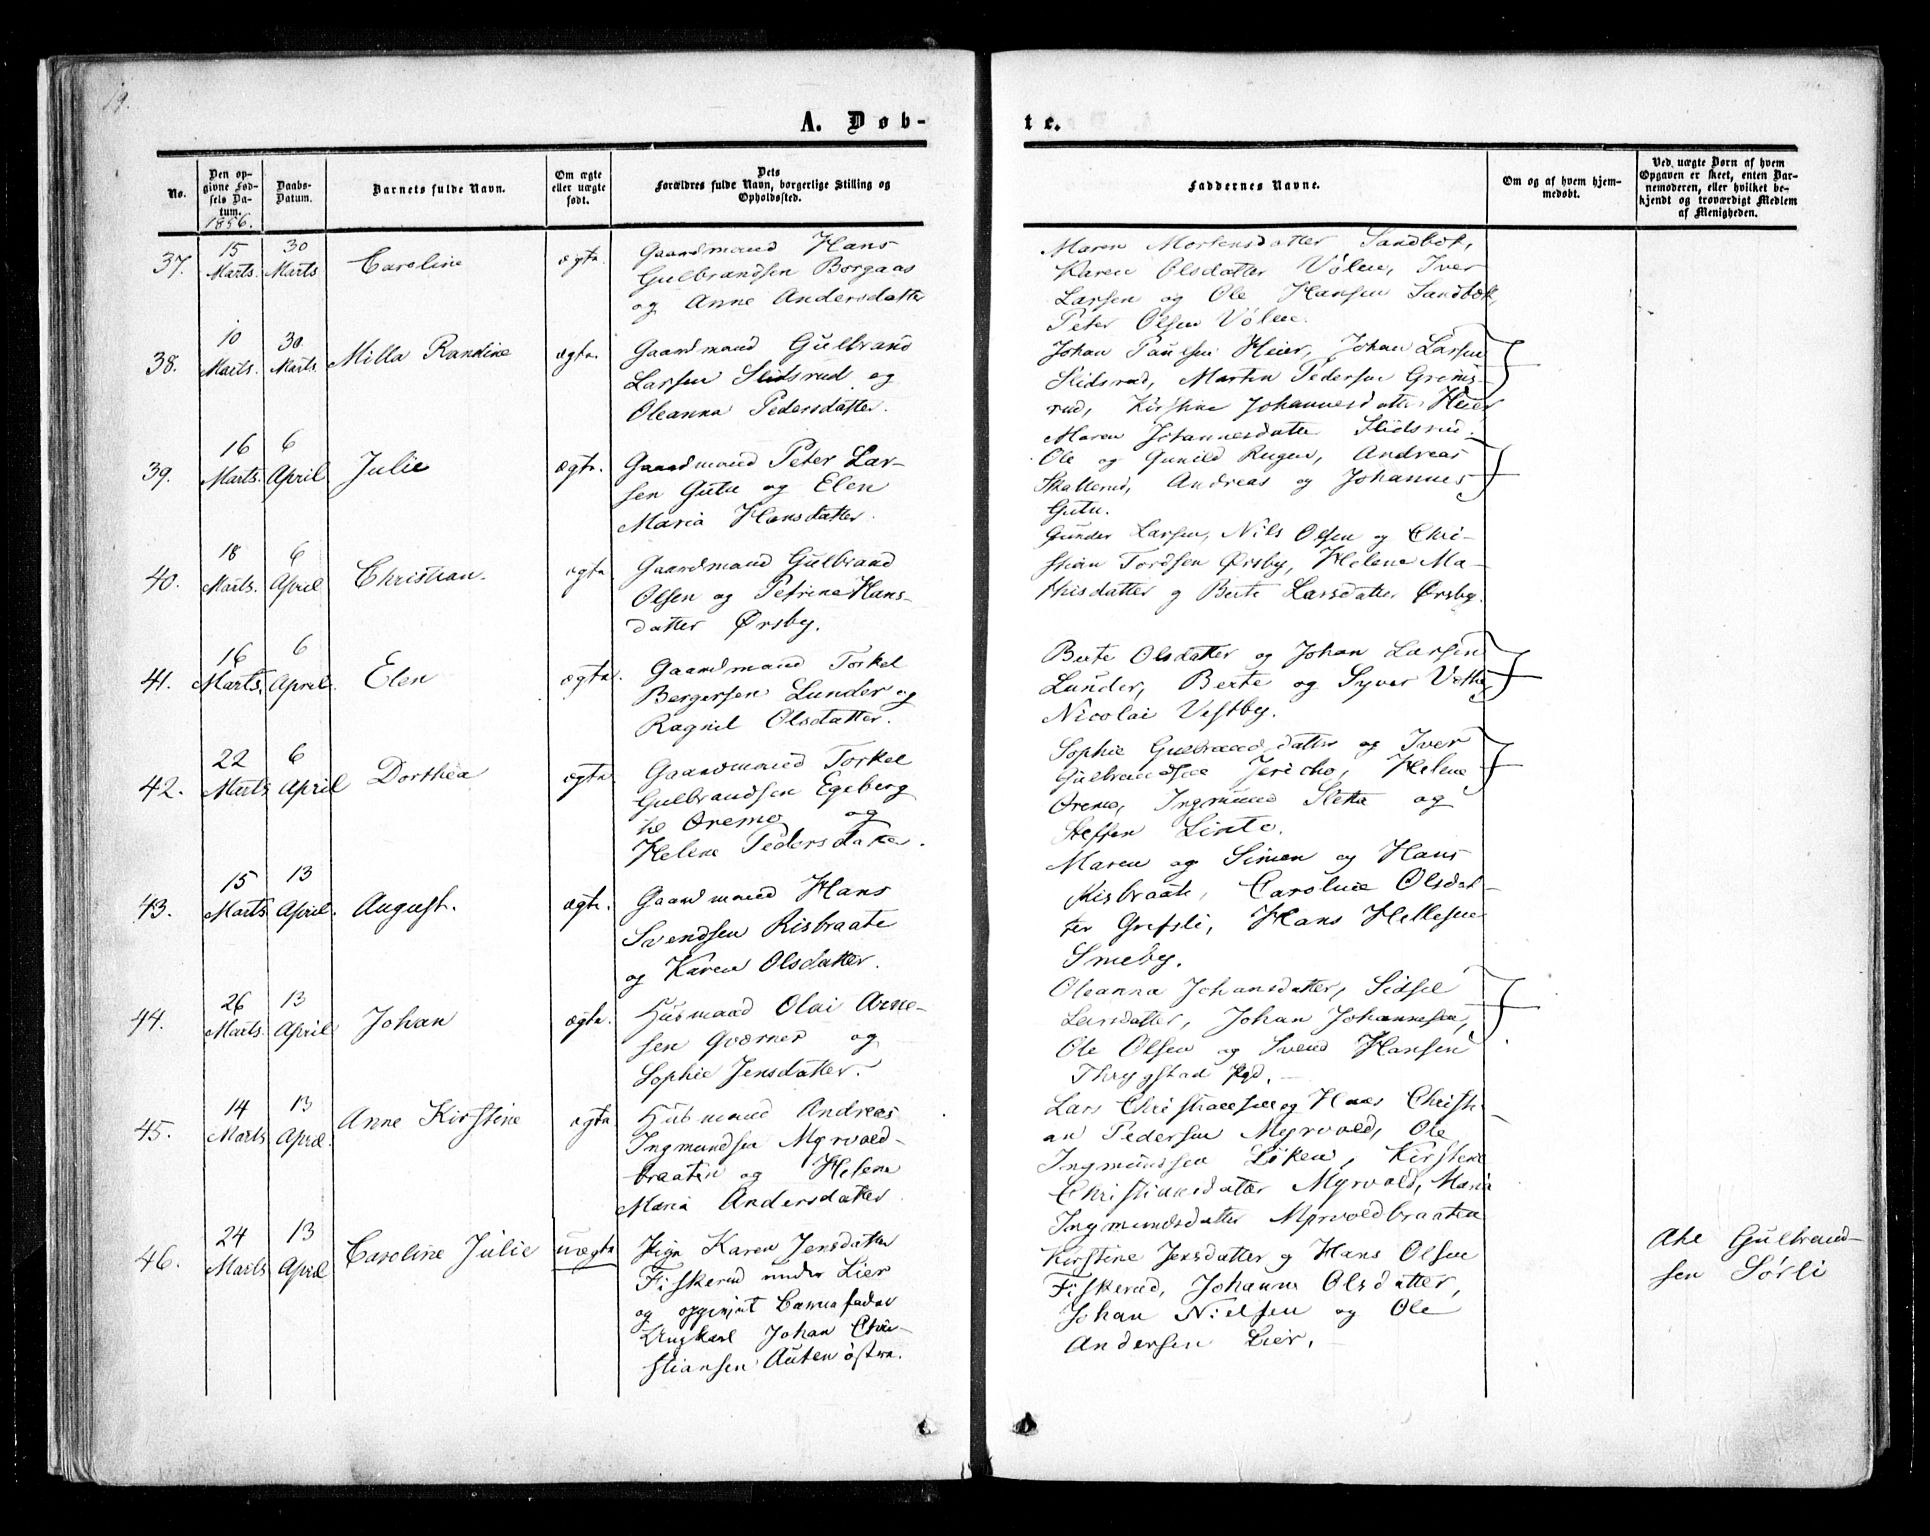 19.
A. Døb-
te.
No.
Den op-
givne Fød-
sels Da-
tum.
1856.
Daabs-
Datum.
Barnets fulde Navn.
Om ægte
eller uægte
født.
Dets
Forældres fulde Navn, borgerlige Stilling og
Opholdssted.
Faddernes Navne.
Om og af hvem hjem-
medøbt.
Ved uægte Børn af hvem
Opgaven er skeet, enten Bar-
nemoderen, eller hvilket be-
kjendt og troværdigt Medlem
af Menigheden.
37. 15 Marts. 30 Marts Caroline ægte.
Gaardmand Hans
Gulbrandsen Borgaas
og Anne Andersdatter
Maren Mortensdatter Sandbæk,
Karen Olsdatter Vølen, Iver
Larsen og Ole Hansen Sandbæk,
Peter Olsen Vølen.
38. 10 Marts. 30 Marts. Milla Randine ægte.
Gaardmand Gulbrand
Larsen Slidsrud og
Oleanna Pedersdatter.
Johan Paulsen Heier, Johan Larsen
Slidsrud, Martin Pedersen Grims-
rud, Kirstine Johannesdatter Heier
Maren Johannesdatter Slidsrud.
39. 16 Marts. 6 April Julie ægte.
Gaardmand Peter Lar-
sen Gutu og Elen
Maria Hansdatter.
Ole og Gunild Rugen, Andreas
Skallerud, Andreas og Johannes
Gutu.
40. 18 Marts. 6 April Christian. ægte
Gaardmand Gulbrand
Olsen og Petrine Hans-
datter Ørsby.
Gunder Larsen, Nils Olsen og Chri-
stian Tordsen Ørsby, Helene Ma-
thisdatter og Berte Larsdatter Ørsby.
41. 16 Marts. 6 April. Elen ægte.
Gaardmand Torkel
Bergersen Lunder og
Ragnil Olsdatter.
Berte Olsdatter og Johan Larsen
Lunder, Berte og Syver Vette,
Nicolai Vestby.
42. 22 Marts 6 April Dorthea ægte
Gaardmand Torkel
Gulbrandsen Egeberg
til Øremo og
Helene Pedersdatter.
Sophie Gulbrandsdatter og Iver
Gulbrandsen Jericho, Helene
Øremo, Ingmund Sletta og
Steffen Linto.
43. 15 Marts 13 April. August. ægte.
Gaardmand Hans
Svendsen Risbraate
og Karen Olsdatter.
Maren og Simen og Hans
Risbraate, Caroline Olsdat-
ter Grefsli, Hans Hellesen
Smeby.
44. 26 Marts. 13 April Johan ægte.
Husmand Olai Arne-
sen Qværner og
Sophie Jensdatter.
Oleanna Johansdatter, Sidsel
Larsdatter, Johan Johannesen,
Ole Olsen og Svend Hansen
Thrygstad Pgd.
45. 14 Marts 13 April. Anne Kirstine ægte
Husmand Andreas
Ingmundsen Myrvold-
braaten og Helene
Maria Andersdatter.
Lars Christiansen og Hans Christi-
an Pedersen Myrvold, Ole
Ingmundsen Løken, Kirstene
Christiansdatter Myrvold, Maria
Ingmundsdatter Myrvoldbraaten
46. 24 Marts 13 April Caroline Julie uægte
Pige Karen Jensdatter
Fiskerud under Lier
og opgivet Barnefader
Ungkarl Johan Chri-
stiansen Auten østre.
Kirstine Jensdatter og Hans Olsen
Fiskerud, Johanne Olsdatter,
Johan Nielsen og Ole
Andersen Lier.
Ate Gulbrand-
sen Sørli